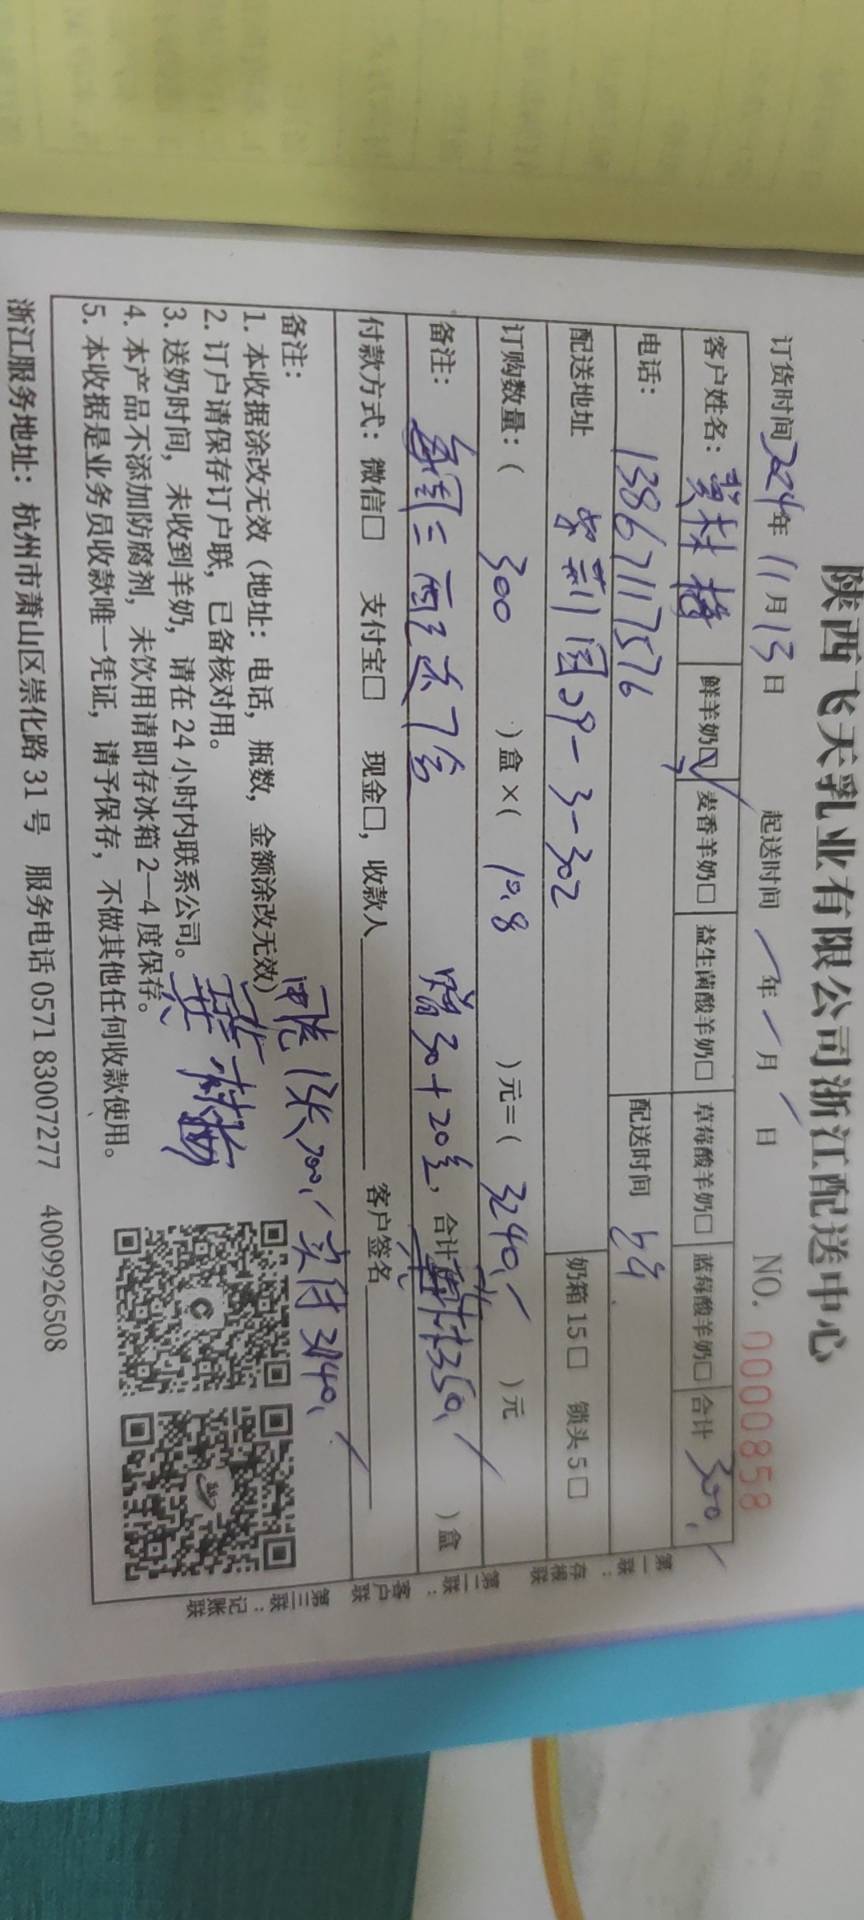 陕西飞天乳业有限公司浙江配送中心
订货时间2024年11月13日 起送时间 年 月 日 NO. 0000858
客户姓名： 鲜羊奶☑ 麦香羊奶□ 益生菌酸羊奶□ 草莓酸羊奶□ 蓝莓酸羊奶□ 合计 300,
电话： 13867117576 配送时间
配送地址 紫荆园29-3-302 奶箱 15□ 锁头 5□
订购数量：( 300 ) 盒 ×( 10.8 ) 元=( 3240, ) 元
备注： 每周二 送7盒 赠30+20盒, 合计 350, ) 盒
付款方式：微信□ 支付宝□ 现金□，收款人 客户签名
备注： 1张 实付3140,
1. 本收据涂改无效（地址：电话，瓶数，金额涂改无效）
2. 订户请保存订户联，已备核对用。
3. 送奶时间，未收到羊奶，请在 24 小时内联系公司。
4. 本产品不添加防腐剂，未饮用请即存冰箱 2—4 度保存。
5. 本收据是业务员收款唯一凭证，请予保存，不做其他任何收款使用。
浙江服务地址：杭州市萧山区崇化路 31 号 服务电话 0571 83007277 4009926508
第一联：存根联
第二联：客户联
第三联：记账联